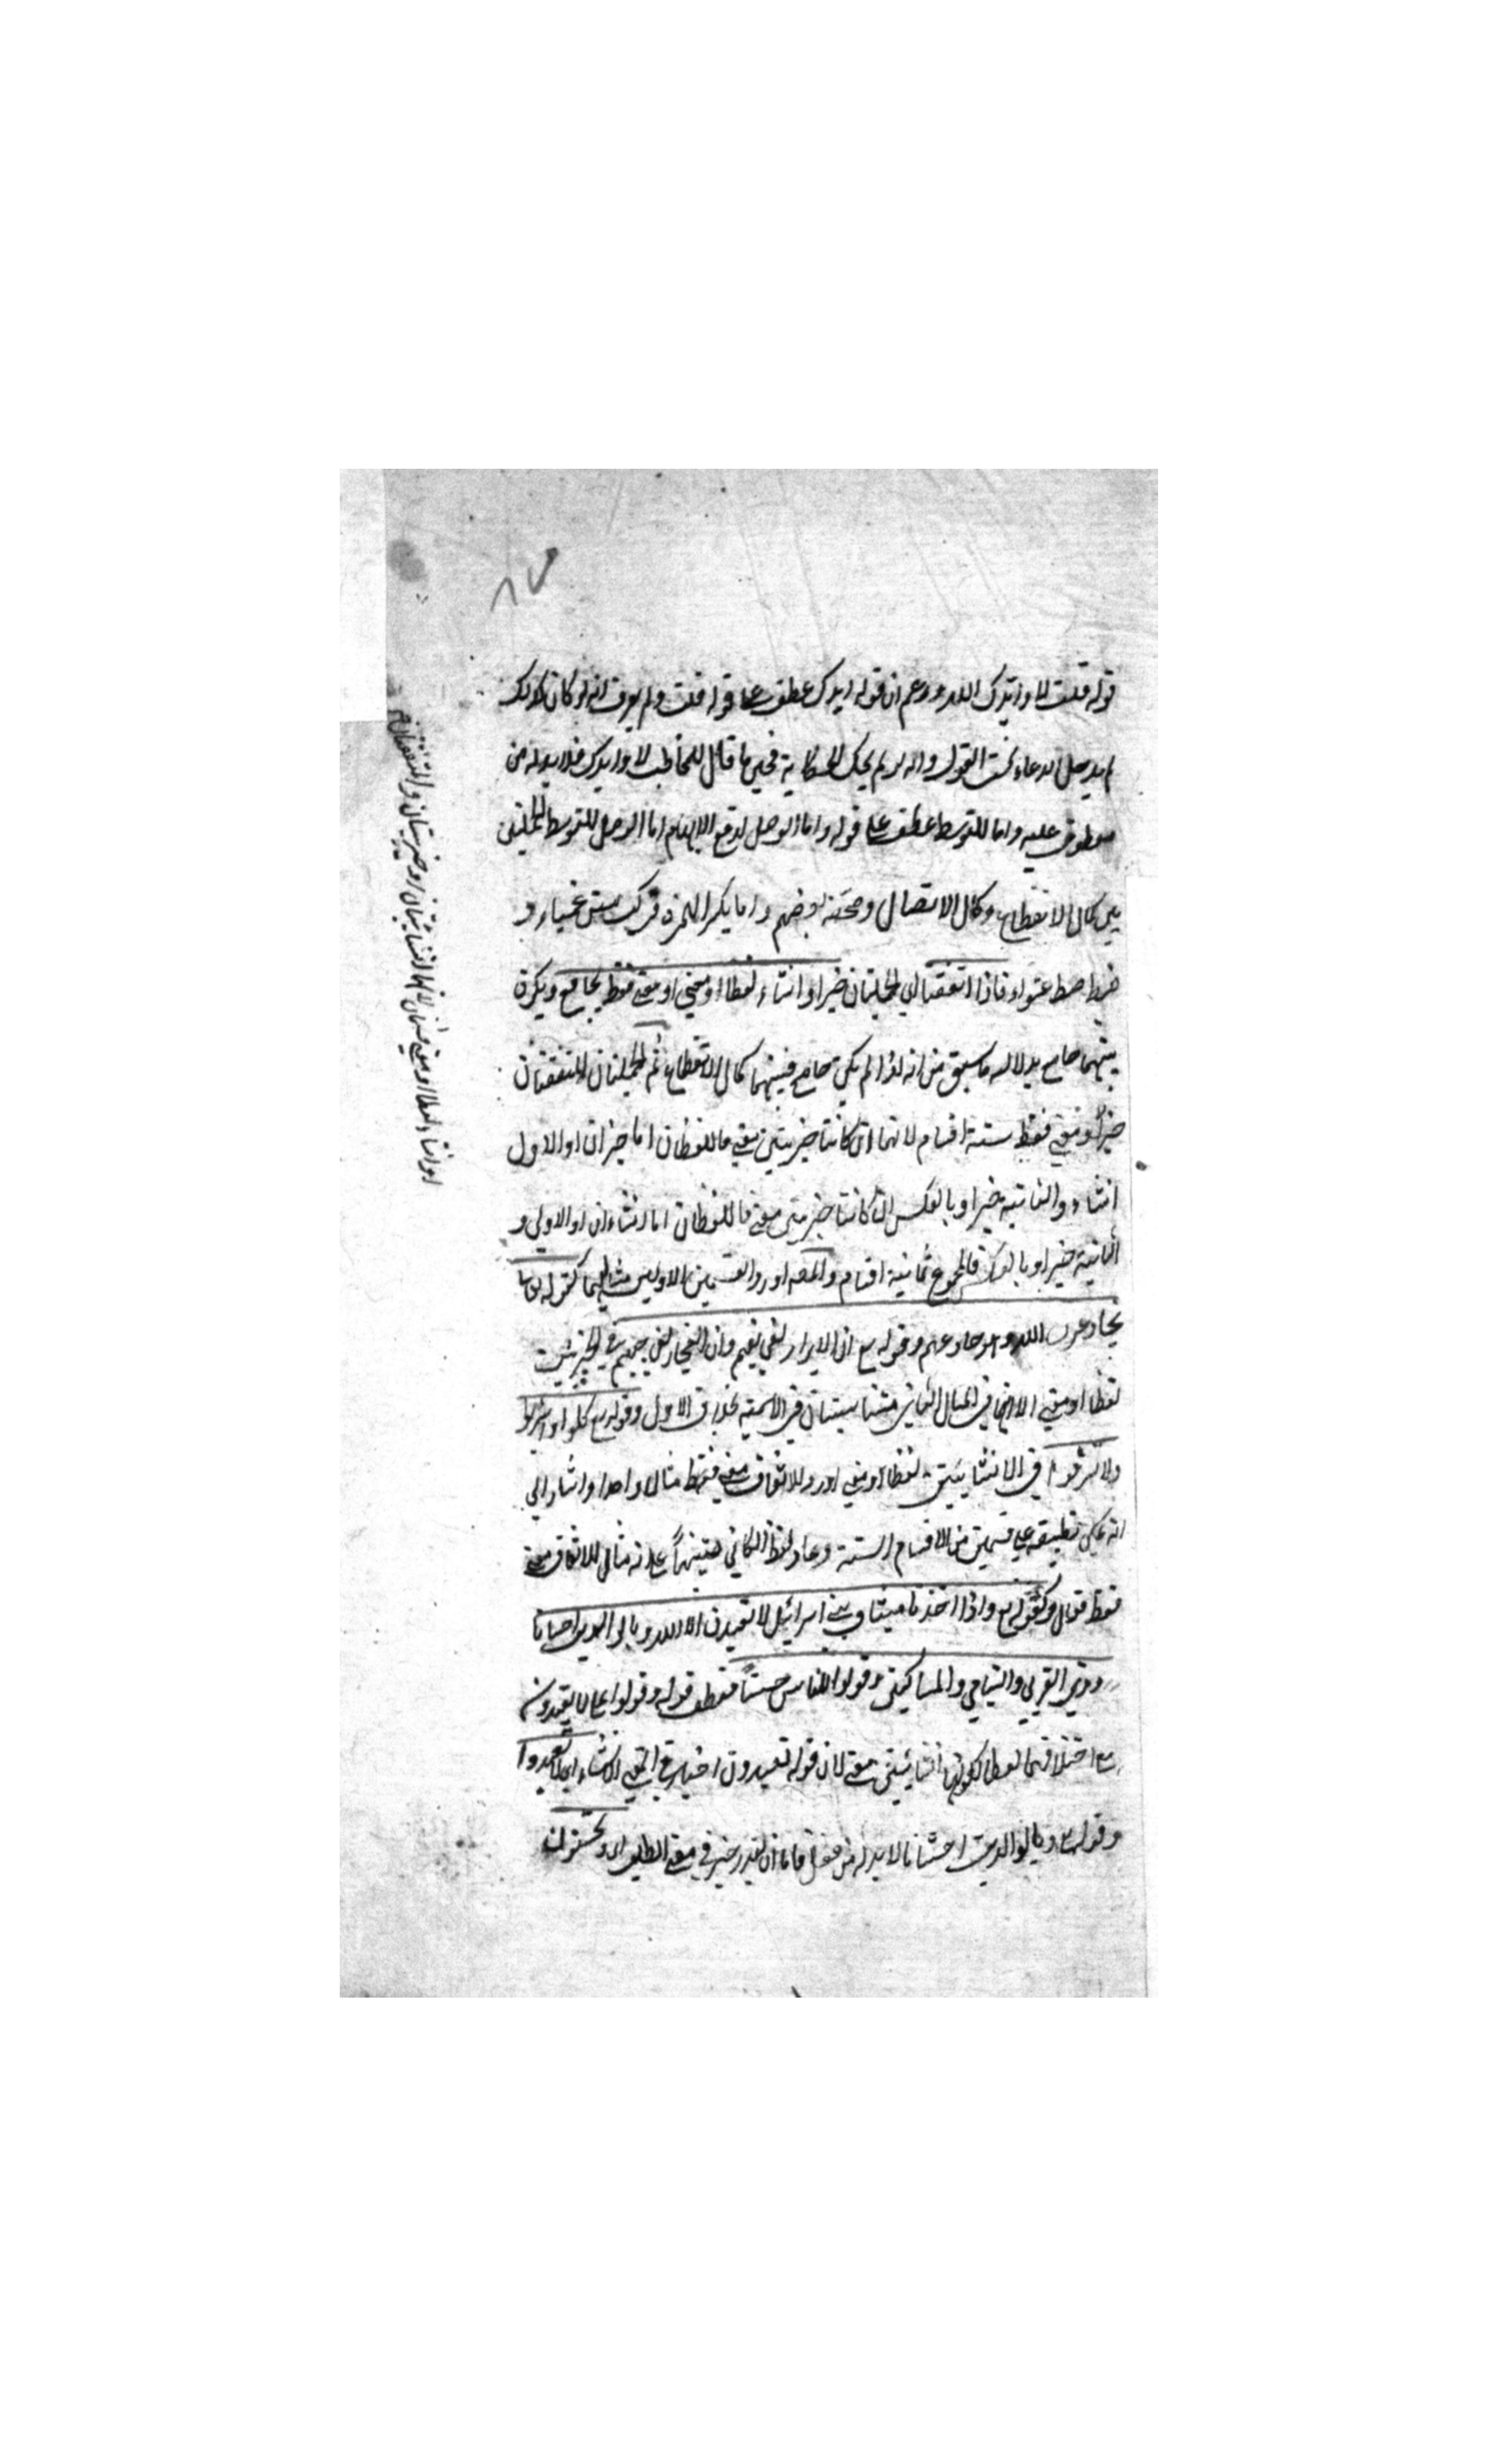 قوله قلت لا وايدك الله وزعم ان قوله ايدك عطف على قوله قلت ولم يعرف انه لو كان كذلك
لم يدخل الدعاء تحت القول وانه لو لم يحك الحكاية فحين ما قال للمخاطب لا وايدك فلا بد له من
معطوف عليه واما للتوسط عطف على قوله واما الوصل لدفع الايهام اما الوصل للتوسط الجملتين
بين كمال الانقطاع وكمال الاتصال وصحفه بعضهم واما بكسر الهمزة فركب متن عمياء و
خبط خبط عشواء فاذا اتفقتا اي الجملتان خبرا او انشاء لفظا ومعنى او معنى فقط بجامع ويكون
بينهما جامع بدلالة ما سبق من انه اذا لم يكن جامع فبينهما كمال الانقطاع ثم الجملتان المتفقتان
خبرا ومعنى فقط ستة اقسام لانهما ان كانتا خبريتين معنى فاللفظان اما خبران او الاول
انشاء والثانية خبرا وبالعكس ان كانتا خبريتين معنى فاللفظان اما انشاءان او الاولى و
الثانية خبرا وبالعكس فالمجموع ثمانية اقسام والمصنف اورد القسمين الاولين مثاليهما كقوله تعالى
يخادعون الله وهو خادعهم وقوله تع ان الابرار لفي نعيم وان الفجار لفي جحيم في الخبريتين
لفظا ومعنى الا انهما في المثال الثاني متناسبتان في الاسمية بخلاف الاول وقوله تع كلوا واشربوا
ولا تسرفوا في الانشائيتين لفظا ومعنى اورد للاتفاق معنى فقط مثالا واحدا واشار الى
انه يمكن تطبيقه على قسمين من الاقسام الستة واعاد لفظ الكاف تنبيها على انه مثال للاتفاق معنى
فقط فقال وكقوله تع واذ اخذنا ميثاق بني اسرائيل لا تعبدون الا الله وبالوالدين احسانا
وذي القربى واليتامى والمساكين وقولوا للناس حسنا فعطف قوله وقولوا على لا تعبدون
مع اختلافهما لفظا لكونهما انشائيتين معنى لان قوله تعبدون اخبار في معنى الانشاء اي لا تعبدوا
وقوله وبالوالدين احسانا لا بد له من فعل فاما ان يقدر خبر في معنى الطلب اي وتحسنون
والمتفقتان
او انشاء لفظا ومعنى قسمان لانهما انشائيتان او خبريتان والمتفقتان